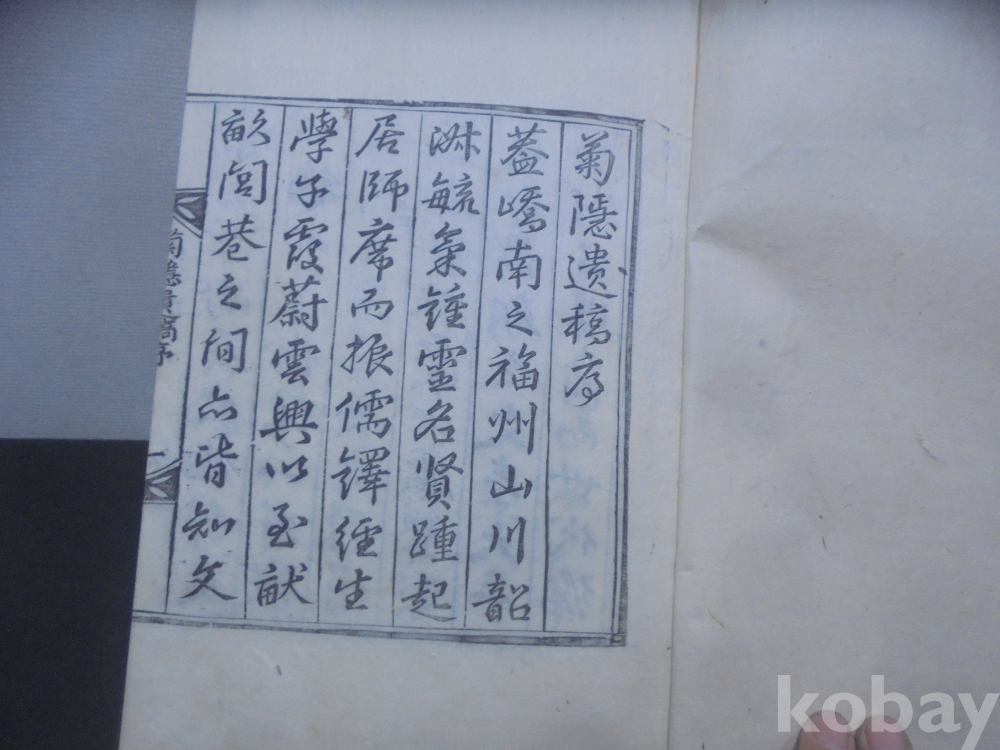 菊隱遺稿序
蓋嶠南之福州山川韶
淋毓氣鍾靈名賢踵起
居師席而振儒鐸經生
學子霞蔚雲興以至畎
畝閭巷之間亦皆知文
菊隱遺稿序
kobay